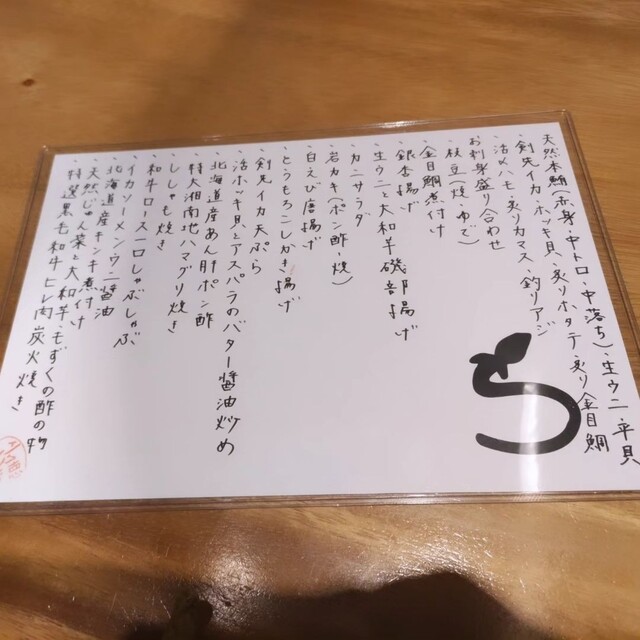 天然本鮪(赤身・中トロ・中落ち)、生ウニ・平貝
剣先イカ・ホッキ貝、炙りホタテ、炙り金目鯛
活〆ハモ、炙りカマス、釣りアジ
お刺身盛り合わせ
枝豆(焼・ゆで)
金目鯛煮付け
銀杏揚げ
生ウニと大和芋磯部揚げ
カニサラダ
岩カキ(ポン酢・焼)
白えび唐揚げ
とうもろこしかき揚げ
剣先イカ天ぷら
活ホッキ貝とアスパラのバター醤油炒め
北海道産あん肝ポン酢
特大湘南地ハマグリ焼き
ししゃも焼き
和牛ロース一口しゃぶしゃぶ
イカソーメンウニ醤油
北海道産キンキ煮付け
天然じゅん菜と大和芋、もずくの酢の物
特選黒毛和牛ヒレ肉炭火焼き